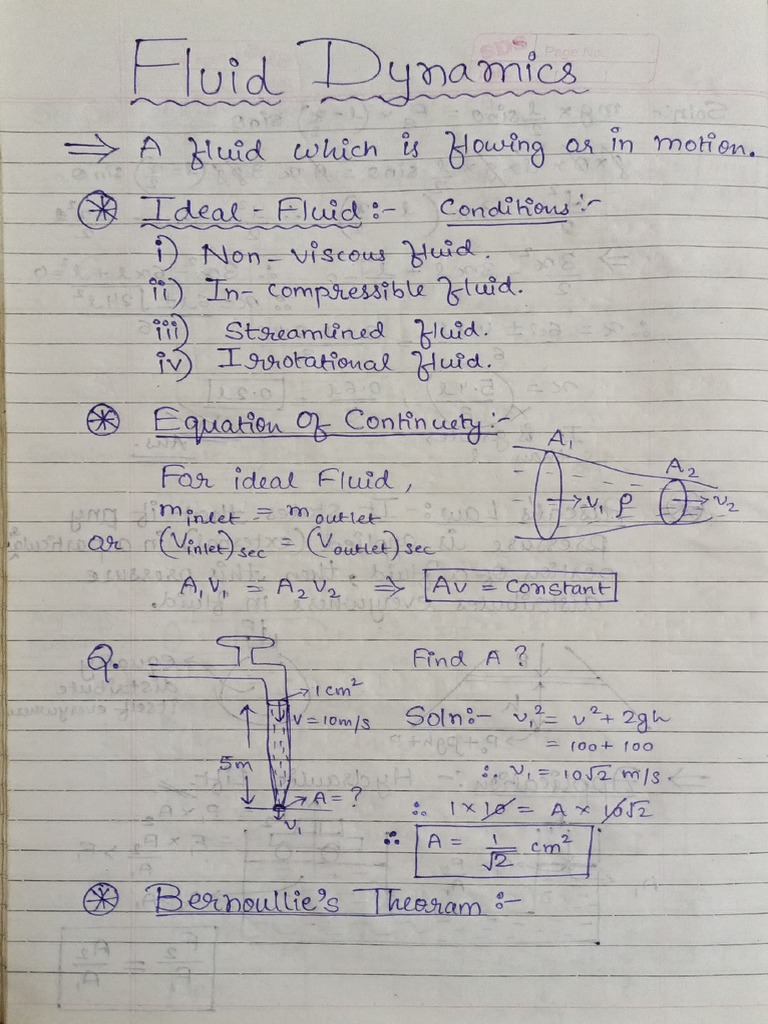 Fluid Dynamics
⇒ A fluid which is flowing or in motion.
⊛ Ideal - Fluid :- Conditions :-
i) Non-viscous fluid.
ii) In-compressible fluid.
iii) Streamlined fluid.
iv) Irrotational fluid.
⊛ Equation Of Continuety :-
For ideal Fluid,
m inlet = m outlet
or (V inlet) sec = (V outlet) sec
A₁V₁ = A₂V₂ ⇒ AV = Constant
A₁
A₂
v₁ ρ v₂
Q.
1 cm²
V = 10 m/s
5m
A = ?
v₁
Find A ?
Soln:- v₁² = v² + 2gh
= 100 + 100
∴ v₁ = 10√2 m/s
∴ 1 × 10 = A × 10√2
∴ A = 1/√2 cm²
⊛ Bernoullie's Theoram :-